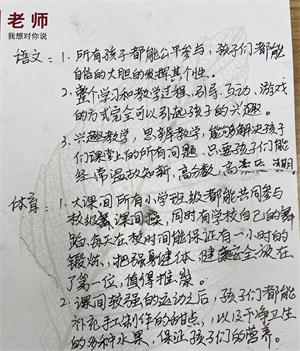 老师
我想对你说
语文：1. 所有孩子都能公平参与，孩子们都能
自信的大胆的发挥其个性。
2. 整个学习和教学过程，引导、互动、游戏
的方式完全可以引起孩子的兴趣。
3. 兴趣教学，思维教学，能够解决孩子
们课堂上的所有问题，只要孩子们能
经常温故知新，高分数，高素质
体育：1. 大课间所有小学班级都能共同参与
校级舞课间操，同时有学校自己的舞
蹈，每天在校时间能保证有一小时的
锻炼，把强身健体、健康安全放在
了第一位，值得推崇。
2. 课间较强的运动之后，孩子们都能
补充手工制作的甜点，以及干净卫生
的多种水果，保证孩子们的营养。